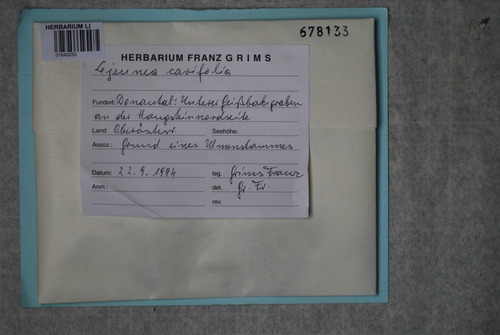 HERBARIUM LI
678133
HERBARIUM FRANZ GRIMS
Lejeunea cavifolia
Fundort: Donautal: Unterer
an der Hangsteinnordseite
Land: Oberösterr. Seehöhe:
Assoz.: Grund eines Ulmenstammes
Datum: 22.9.1994 leg. Grims Franz
Anm.: det. Gr. Fr.
rev.